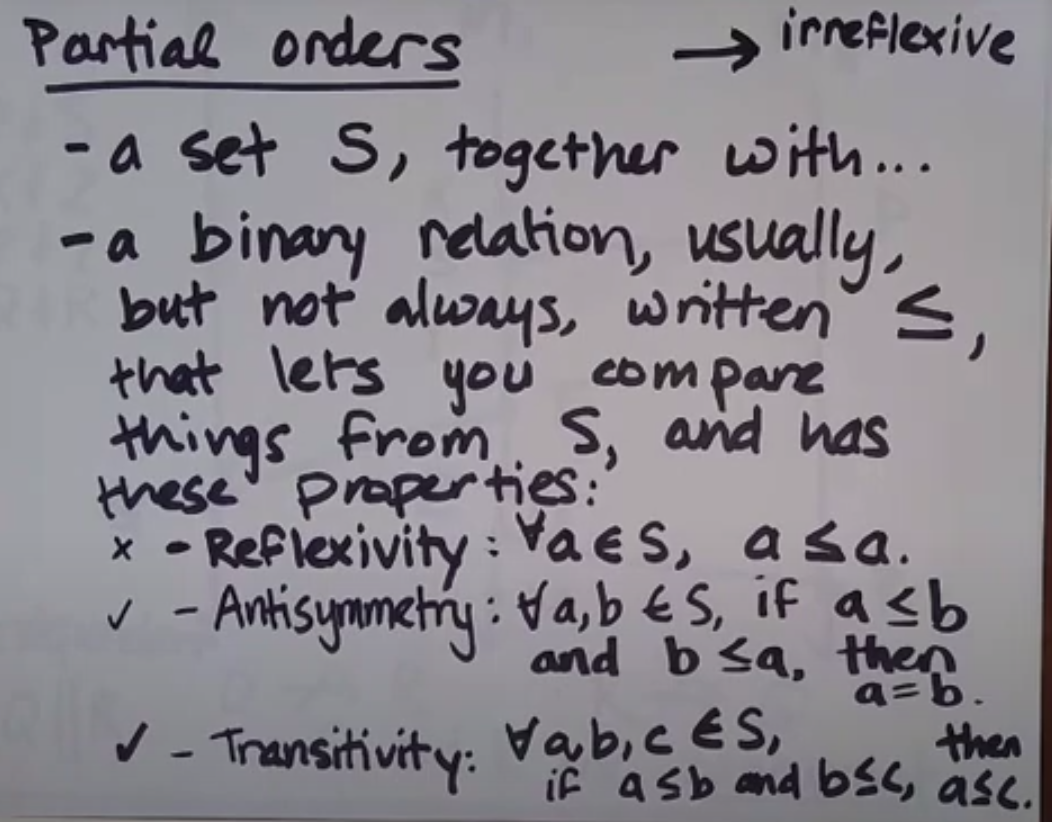 Partial orders → irreflexive
- a set S, together with...
- a binary relation, usually,
but not always, written ≤,
that lets you compare
things from S, and has
these properties:
x - Reflexivity: ∀a∈S, a≤a.
✓ - Antisymmetry: ∀a,b∈S, if a≤b
and b≤a, then
a=b.
✓ - Transitivity: ∀a,b,c∈S, then
if a≤b and b≤c, a≤c.